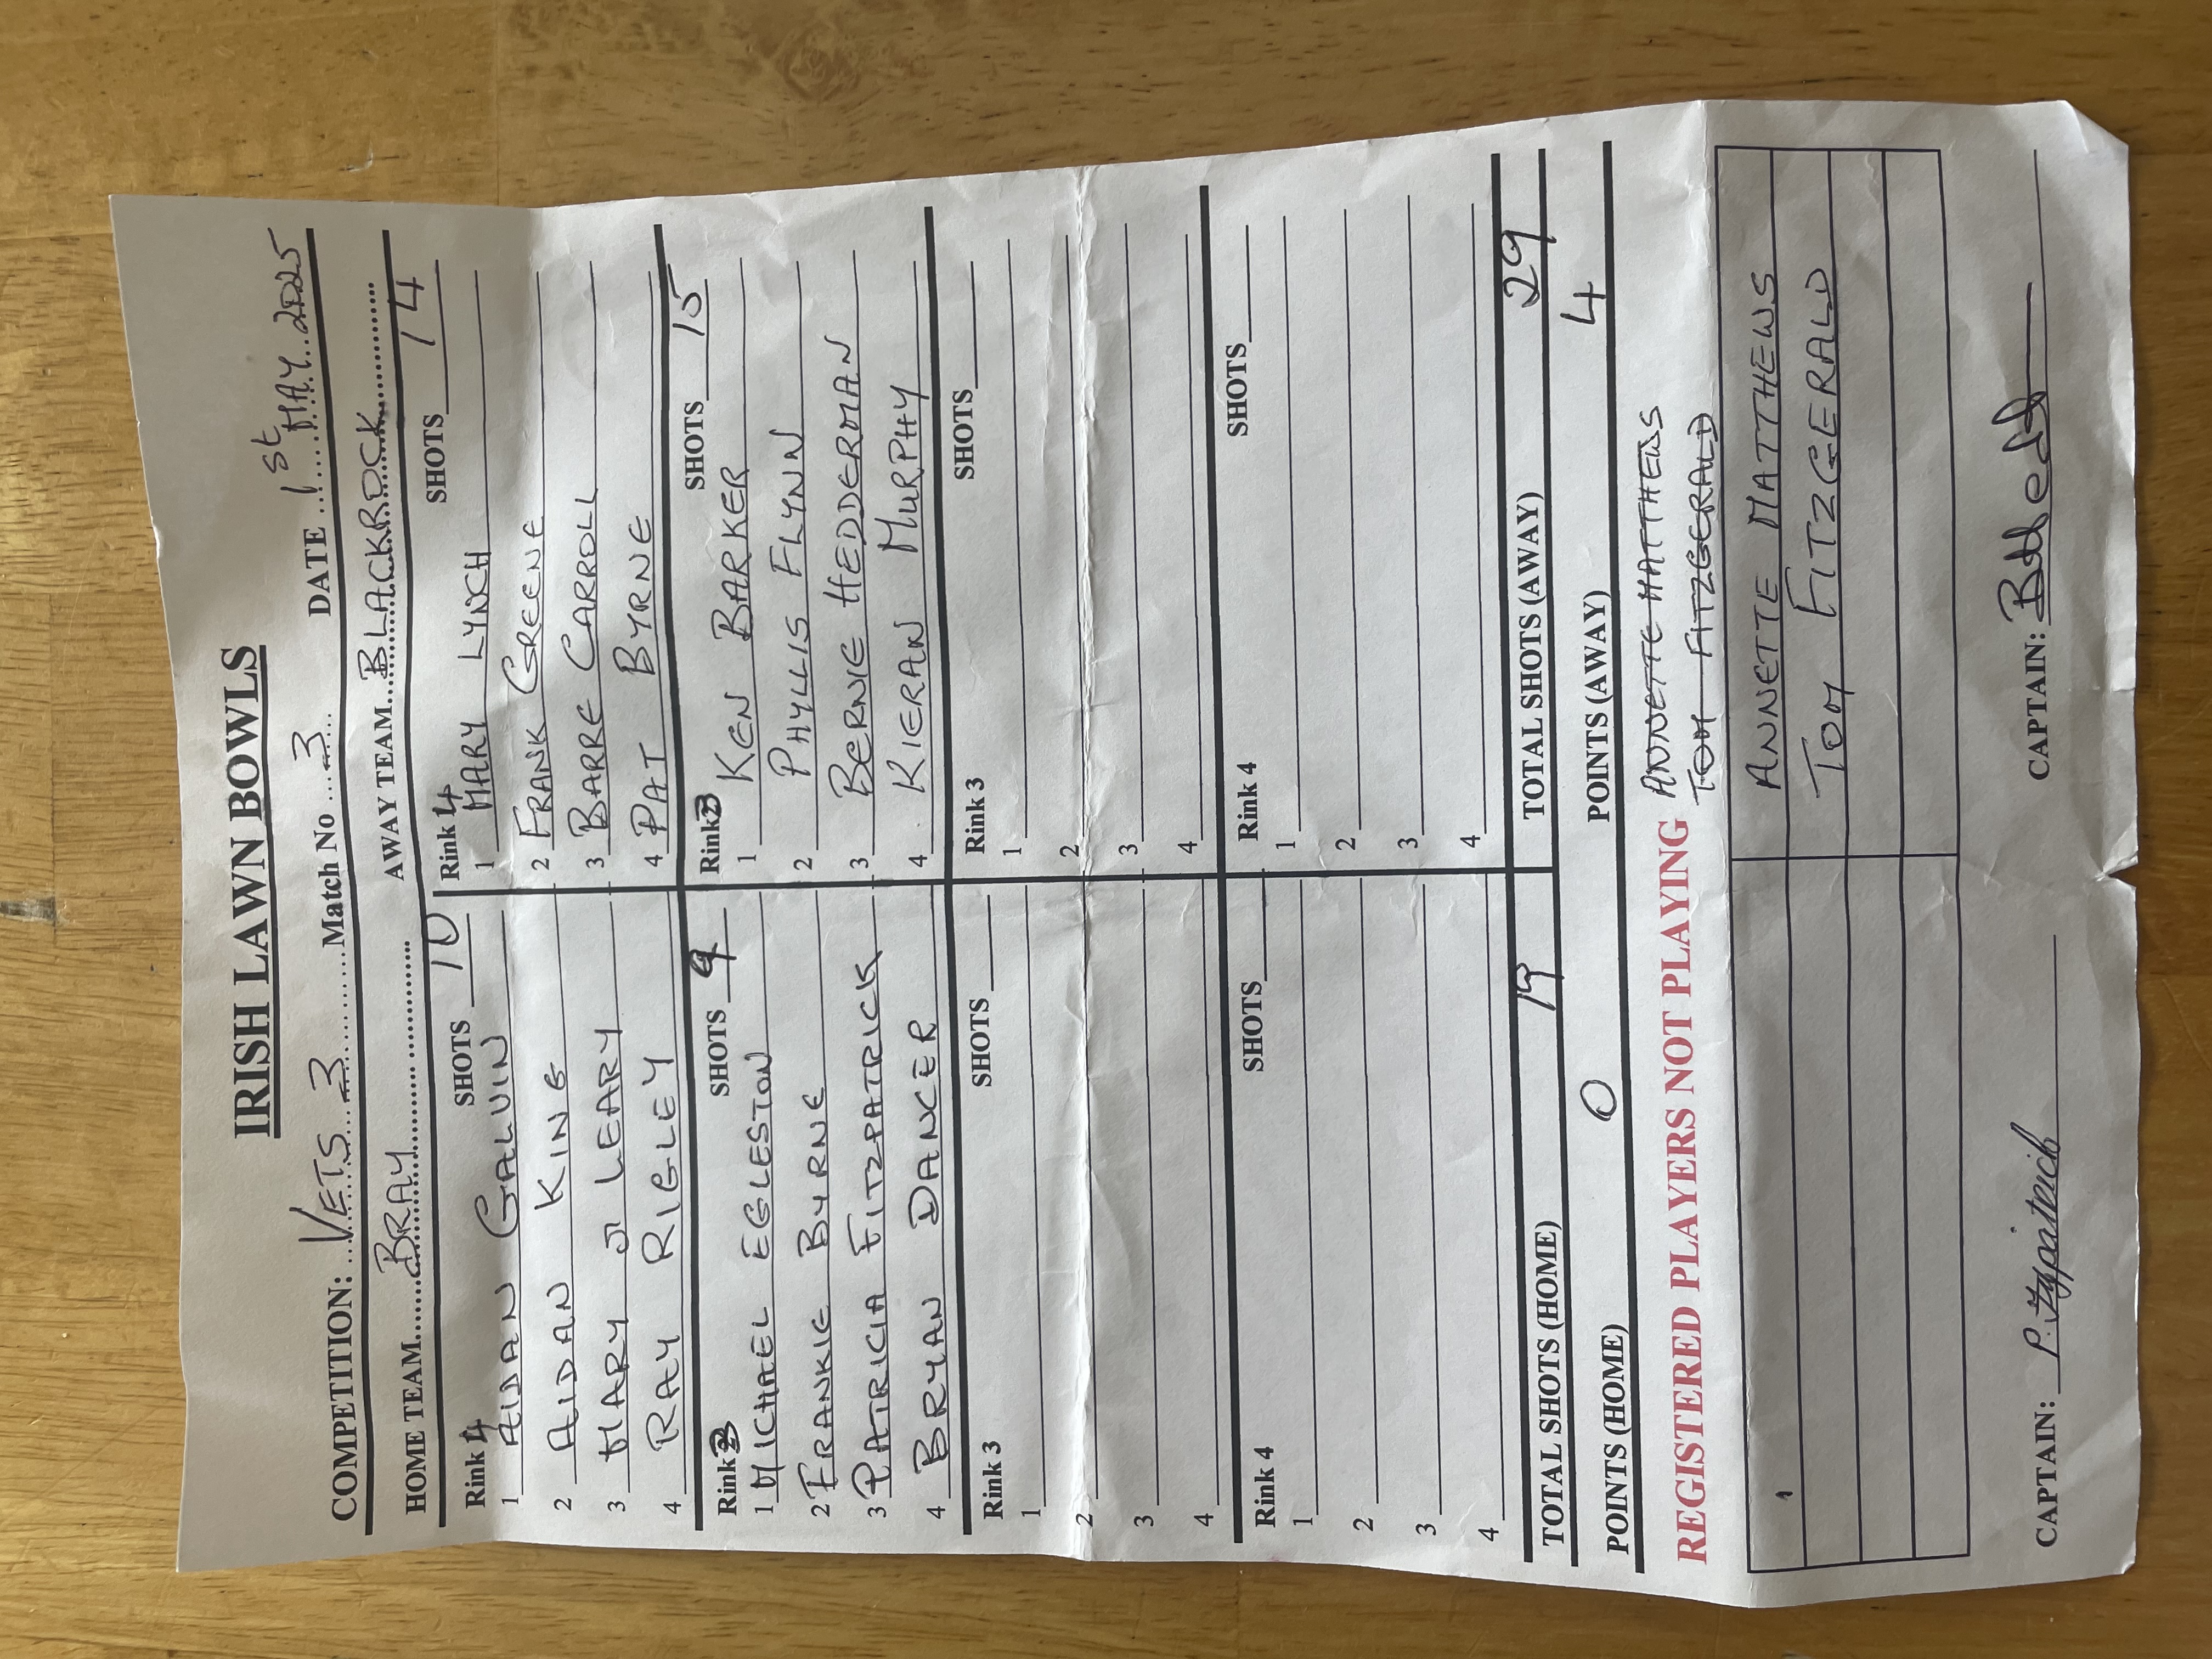 IRISH LAWN BOWLS
COMPETITION: VETS 3 Match No 3 DATE 1st MAY 2025
HOME TEAM BRAY AWAY TEAM BLACKROCK
Rink 4 SHOTS 10 Rink 4 SHOTS 14
1 AIDAN GALVIN 1 MARY LYNCH
2 AIDAN KING 2 FRANK GREENE
3 MARY J LEARY 3 BARRE CARROLL
4 RAY RIGLEY 4 PAT BYRNE
Rink 3 SHOTS 9 Rink 3 SHOTS 15
1 MICHAEL EGLESTON 1 KEN BARKER
2 FRANKIE BYRNE 2 PHYLLIS FLYNN
3 PATRICIA FITZPATRICK 3 BERNIE HEDDERMAN
4 BRYAN DANCER 4. KIERAN MURPHY
Rink 3 SHOTS Rink 3 SHOTS
1 1
2 2
3 3
4 4
Rink 4 SHOTS Rink 4 SHOTS
1 1
2 2
3 3
4 4
TOTAL SHOTS (HOME) 19 TOTAL SHOTS (AWAY) 29
POINTS (HOME) 0 POINTS (AWAY) 4
REGISTERED PLAYERS NOT PLAYING ANNETTE MATTHEWS
TOM FITZGERALD
ANNETTE MATTHEWS
TOM FITZGERALD
CAPTAIN: P. Fitzpatrick CAPTAIN: